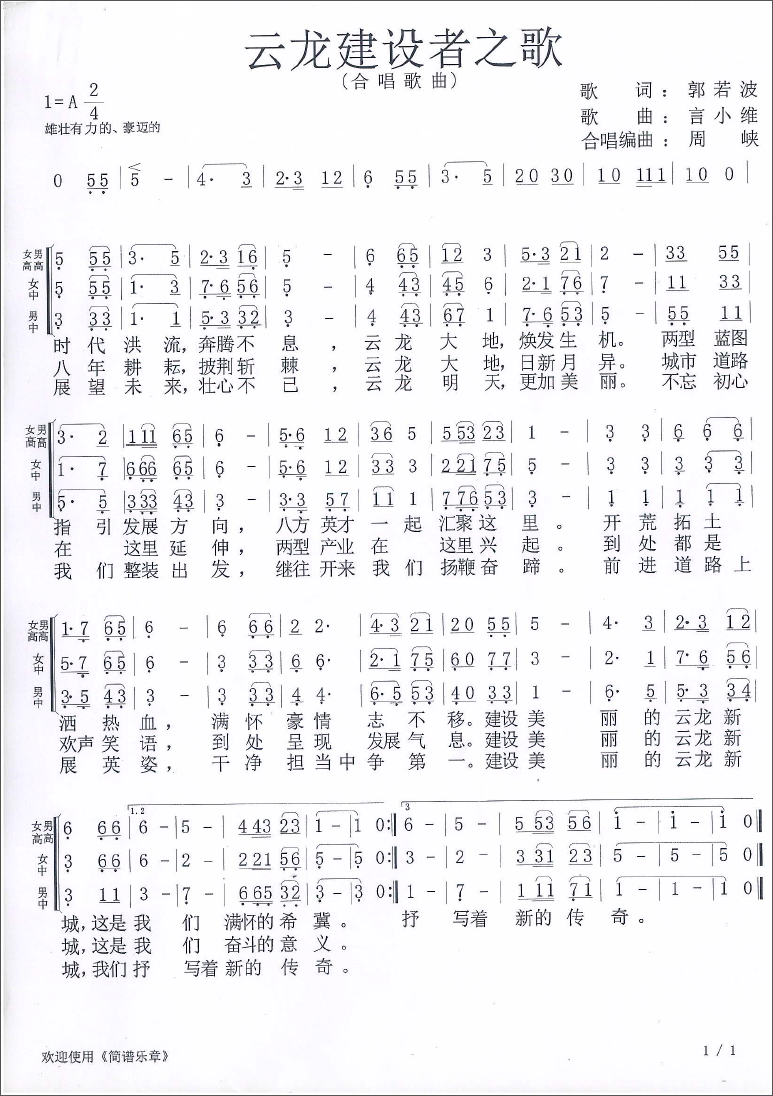 云龙建设者之歌
(合唱歌曲)
1=A 2/4
歌 词：郭若波
歌 曲：言小维
合唱编曲：周 峡
雄壮有力的、豪迈的
0 55 | 5 - | 4· 3 | 2·3 12 | 6 55 | 3· 5 | 20 30 | 10 111 | 10 0 |
女高 男高 5 55 | 3· 5 | 2·3 16 | 5 - | 6 65 | 12 3 | 5·3 21 | 2 - | 33 55 |
女中 5 55 | 1· 3 | 7·6 56 | 5 - | 4 43 | 45 6 | 2·1 76 | 7 - | 11 33 |
男中 3 33 | 1· 1 | 5·3 32 | 3 - | 4 43 | 67 1 | 7·6 53 | 5 - | 55 11 |
时代 洪流,奔腾不 息，云龙 大 地,焕发生 机。两型 蓝图
八年 耕耘,披荆斩 棘，云龙 大 地,日新月 异。城市 道路
展望 未来,壮心不 已，云龙 明 天,更加美 丽。不忘 初心
女高 男高 3· 2 | 111 65 | 6 - | 5·6 12 | 36 5 | 553 23 | 1 - | 3 3 | 6 6 |
女中 1· 7 | 666 65 | 6 - | 5·6 12 | 33 3 | 221 75 | 5 - | 3 3 | 3 3 |
男中 5· 5 | 333 43 | 3 - | 3·3 57 | 11 1 | 776 53 | 3 - | 1 1 | 1 1 |
指 引 发展 方 向，八方 英才 一 起 汇聚 这 里。开 荒 拓 土
在 这里 延 伸，两型 产业 在 这里 兴 起。到 处 都 是
我 们 整装 出 发，继往 开来 我 们 扬鞭 奋 蹄。前 进 道 路 上
女高 男高 1·7 65 | 6 - | 6 66 | 2 2· | 4·3 21 | 20 55 | 5 - | 4· 3 | 2·3 12 |
女中 5·7 65 | 6 - | 3 33 | 6 6· | 2·1 75 | 60 77 | 3 - | 2· 1 | 7 6 56 |
男中 3·5 43 | 3 - | 3 33 | 4 4· | 6·5 53 | 40 33 | 1 - | 6· 5 | 5 3 34 |
洒 热 血，满 怀 豪 情 志 不 移。建设 美 丽 的 云龙 新
欢声 笑 语，到 处 呈 现 发展 气 息。建设 美 丽 的 云龙 新
展 英 姿，干 净 担 当中 争 第 一。建设 美 丽 的 云龙 新
1.2 3
女高 男高 6 66 | 6 - | 5 - | 443 23 | 1 - | 1 0 :‖ 6 - | 5 - | 553 56 | 1 - | 1 - | 1 0 ‖
女中 3 66 | 3 - | 2 - | 221 56 | 5 - | 5 0 :‖ 3 - | 2 - | 331 23 | 5 - | 5 - | 5 0 ‖
男中 3 11 | 3 - | 7 - | 665 32 | 3 - | 3 0 :‖ 1 - | 7 - | 111 71 | 1 - | 1 - | 1 0 ‖
城,这是 我 们 满怀的 希 冀。抒 写着 新的 传 奇。
城,这是 我 们 奋斗的 意 义。
城,我们 抒 写着 新的 传 奇。
欢迎使用《简谱乐章》
1 / 1